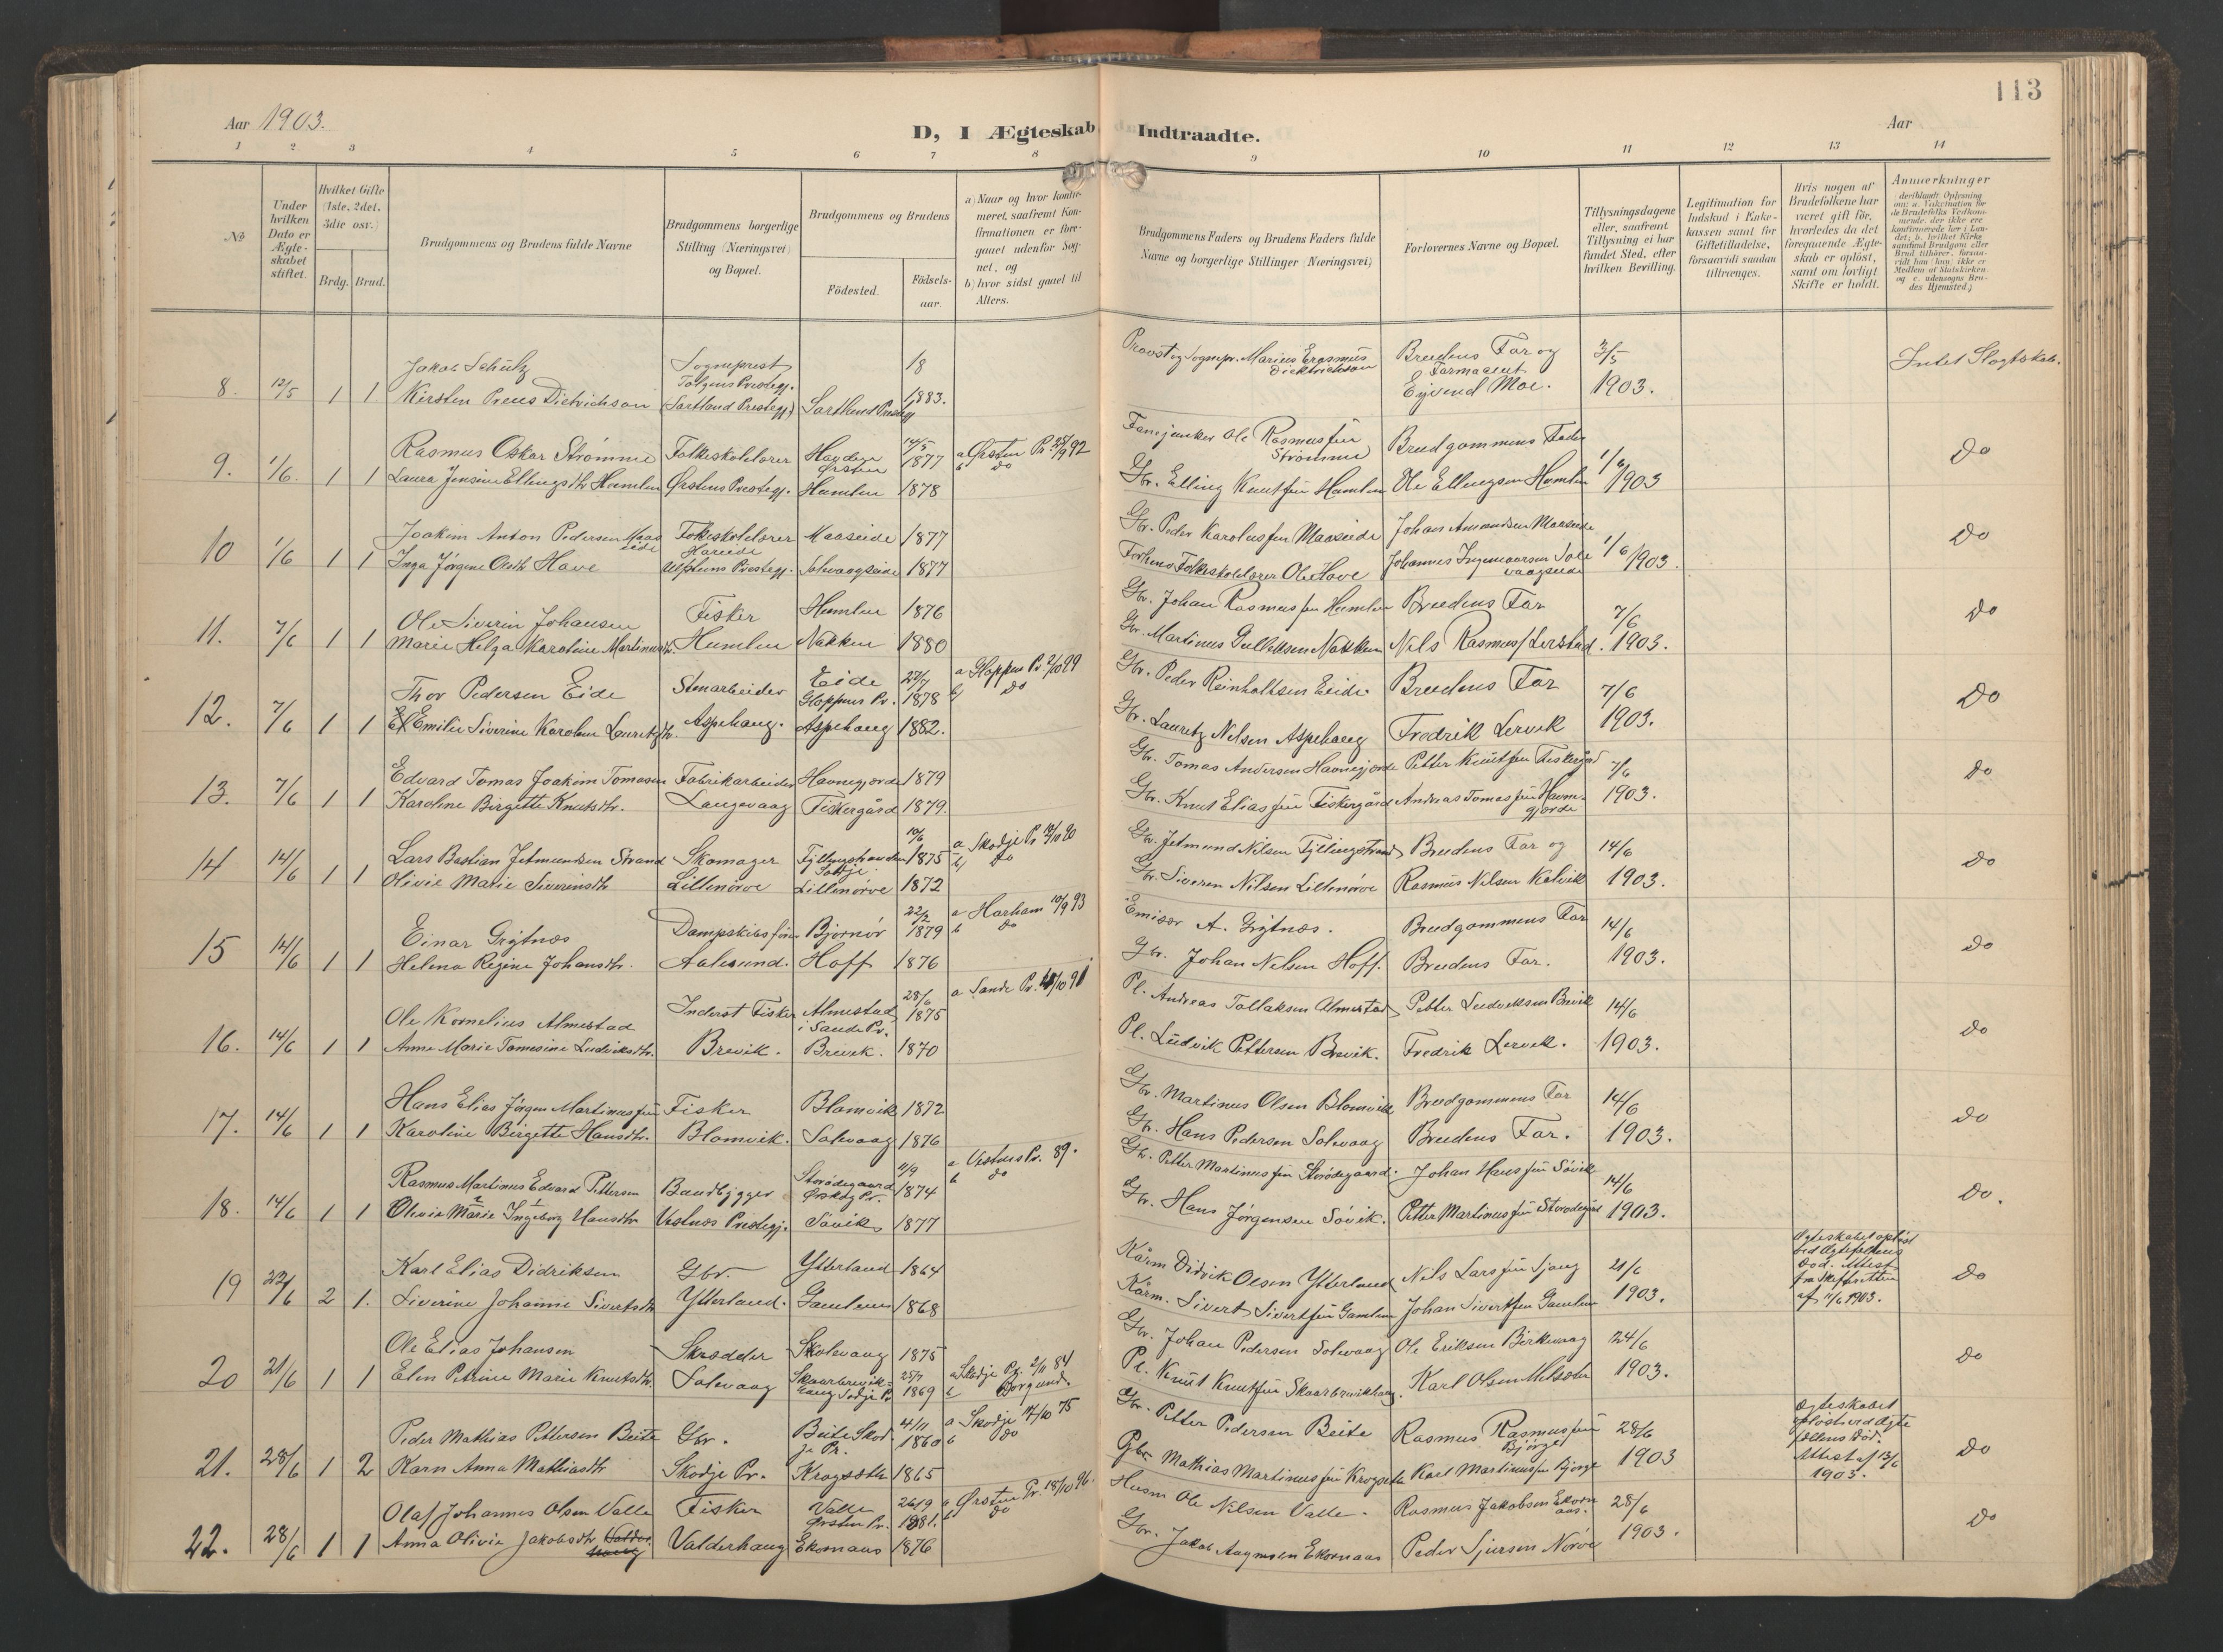 113
Aar 1903.
D, I Ægteskab Indtraadte.
Aar
1 2 3 4 5 6 7 8 9 10 11 12 13 14
No
Under hvilken Dato er Ægteskabet stiftet.
Hvilket Gifte (1ste, 2det, 3die osv.)
Brdg. Brud.
Brudgommens og Brudens fulde Navne
Brudgommens borgerlige Stilling (Næringsvei) og Bopæl.
Brudgommens og Brudens
Födested.
Födselsaar.
a) Naar og hvor konfirmeret, saafremt Konfirmationen er foregaaet udenfor Sognet, og
b) hvor sidst gaaet til Alters.
Brudgommens Faders og Brudens Faders fulde Navne og borgerlige Stillinger (Næringsvei)
Forlovernes Navne og Bopæl.
Tillysningsdagene eller, saafremt Tillysning ei har fundet Sted, efter hvilken Bevilling.
Legitimation for Indskud i Enkekassen samt for Giftetilladelse, forsaavidt saadan tiltrænges.
Hvis nogen af Brudefolkene har været gift för, hvorledes da det foregaaende Ægteskab er oplöst, samt om lovligt Skifte er holdt.
Anmerkninger
8. 12/5 1 1
Jakob Schütz Sogneprest 18
Kirsten Preus Dietrichson (Sartland Prestegj) Sartland Prestegj 1883.
Provst og Sognepr. Marius Erasmus Dietrichson
Brudens Far og Farmaceut Eyvind Moe. 3/5 1903. Intet Slagtskab.
9. 1/6. 1 1
Rasmus Oskar Strømme Folkeskolelærer Ørsten 14/5 1877 a Ørsten Pr. 25/9 92 b do
Laura Jensine Ellingsdtr Humlen Ørstens Prestegj. Humlen 1878
Fanejunker Ole Rasmussen Strømme Brudgommens Fader
Gbr. Elling Knutsen Humlen Ole Ellingsen Humlen 1/6 1903 Do
10 1/6 1 1
Joakim Anton Pedersen Maaseide Folkeskolelærer Maaseide 1877
Inga Jørgine Olsdtr Hove Hareide Ulfstens Prestegj. Solevaagseide 1877
Gbr. Peder Karolussen Maaseide Johan Amundsen Maaseide
Forhenv Folkeskolelærer Ole Hove Johannes Ingemarsen Solevaagseide 1/6 1903. Do
11. 7/6 1 1
Ole Siverin Johansen Fisker Humlen 1876
Marie Helga Karoline Martinusdtr. Humlen Nakken 1880
Gbr. Johan Rasmussen Humlen Brudens Far 7/6
Gbr. Martinus Gulleksen Nakken Nils Rasmuss. Lerstad. 1903. Do
12. 7/6 1 1
Thor Pedersen Eide Stenarbeider Eide Gloppens Pr. 27/7 1878 a Gloppen Pr. 2/10 99 b) do
Emilie Siverine Karoline Lauritzdtr. Aspehaug. Aspehaug 1882.
Gbr. Peder Reinholtsen Eide Brudens Far 7/6
Gbr. Lauritz Nelsen Aspehaug Fredrik Lervik 1903. Do
13. 7/6 1 1
Edvard Tomas Joakim Tomasen Fabrikarbeider Havnegjerde 1879
Karoline Birgitte Knutsdtr. Langevaag Fiskergård 1879.
Gbr. Tomas Andersen Havnegjerde Petter Knutsen Fiskergård 7/6
Gbr. Knut Eliassen Fiskergård Andreas Tomassen Havnegjerde 1903. Do
14 14/6 1 1
Lars Bastian Jetmundsen Strand Skomager 10/6 1875 a Skodje Pr. 12/10 90 b) do
Olivie Marie Siverinsdtr Lillenørve Lillenørve 1872
Gbr. Jetmund Nilsen Fyllingstrand Brudens Far og 14/6
Gbr. Siveren Nilsen Lillenørve Rasmus Nilsen Kalvik 1903. Do
15 14/6 1 1
Einar Grytnæs Dampskibsfører Bjørnør 22/2 1879 a Harham 10/9 93 b do
Helena Regine Johansdtr. Aalesund. Hoff 1876
Emisær A. Grytnæs. Brudgommens Far 14/6
Gbr. Johan Nelsen Hoff. Brudens Far. 1903. Do
16. 14/6 1 1
Ole Kornelius Almestad Inderst Fisker Almestad i Sande Pr. 28/6 1875 a Sande Pr. 10 91
Anne Marie Tomesine Ludviksdtr. Brevik. Brevik. 1870
Pl. Andreas Tollaksen Almestad Petter Ludviksen Brevik 14/6
Pl. Ludvik Pettersen Brevik. Fredrik Lervik. 1903. Do
17. 14/6 1 1
Hans Elias Jørgen Martinussen Fisker Blomvik 1872
Karoline Birgette Hansdtr. Blomvik. Solevaag 1876
Gbr. Martinus Olsen Blomvik Brudgommens Far 14/6
Gbr. Hans Pedersen Solevaag Brudens Far. 1903. Do
18. 14/6 1 1
Rasmus Martinus Edvard Pettersen Baadbygger Storødegaard Ørskog Pr. 4/9 1874 a Vestnes Pr. 89. b do
Olivie Marie Ingeborg Hansdtr Vestnes Prestegj. Søvik 1877
Gbr. Petter Martinussen Storødegaard. Johan Hanssen Søvik 14/6
Gbr. Hans Jørgensen Søvik. Petter Martinussen Storødegård 1903. Do.
19 22/6 2 1.
Karl Elias Didriksen Gbr. Ytterland 1864
Siverine Johanne Sivertsdtr Ytterland. Gamlem 1868
Kårm Didrik Olsen Ytterland Nils Larssen Sjong 21/6
Kårm. Sivert Sivertsen Gamlem Johan Sivertsen Gamlem 1903.
Ægteskabet opløst ved Ægtefællens Død. Attest fra Skifteretten af 11/6 1903. Do
20 21/6 1 1
Ole Elias Johansen Skrædder Solevaag 1875
Elen Petrine Marie Knutsdtr. Solevaag Skaarbrevikhaug Skodje Pr 25/7 1869 a Skodje Pr. 2/11 84 b Borgund.
Gbr. Johan Pedersen Solevaag Ole Eriksen Birkevaag 24/6
Pl. Knut Knutsen Skaarbrevikhaug. Karl Olsen Melsæter 1903. Do
21. 28/6 1 2
Peder Mathias Pettersen Beite Gbr. Beite Skodje Pr. 4/11 1860 a Skodje 17/10 75 b do
Karn Anna Mathiasdtr Skodje Pr. Krogsæth 1865
Gbr. Petter Pedersen Beite Rasmus Rasmussen Bjørge 28/6
Gbr Mathias Martinussen Krogseth Karl Martinussen Bjørge 1903
Ægteskabet opløst ved Ægtefællens Død. Attest af 13/6 1903. Do
22. 28/6 1 1
Olaf Johannes Olsen Valle Fisker Valle Ørsten Pr. 26/9 1881. a Ørsten Pr. 18/10 96. b do
Anna Olivie Jakobsdtr Valderhaug Ekornaas 1876
Husm Ole Nilsen Valle. Rasmus Jakobsen Ekornaas. 28/6
Gbr. Jakob Aagmsen Ekornaas Peder Sjursen Nørve 1903. Do